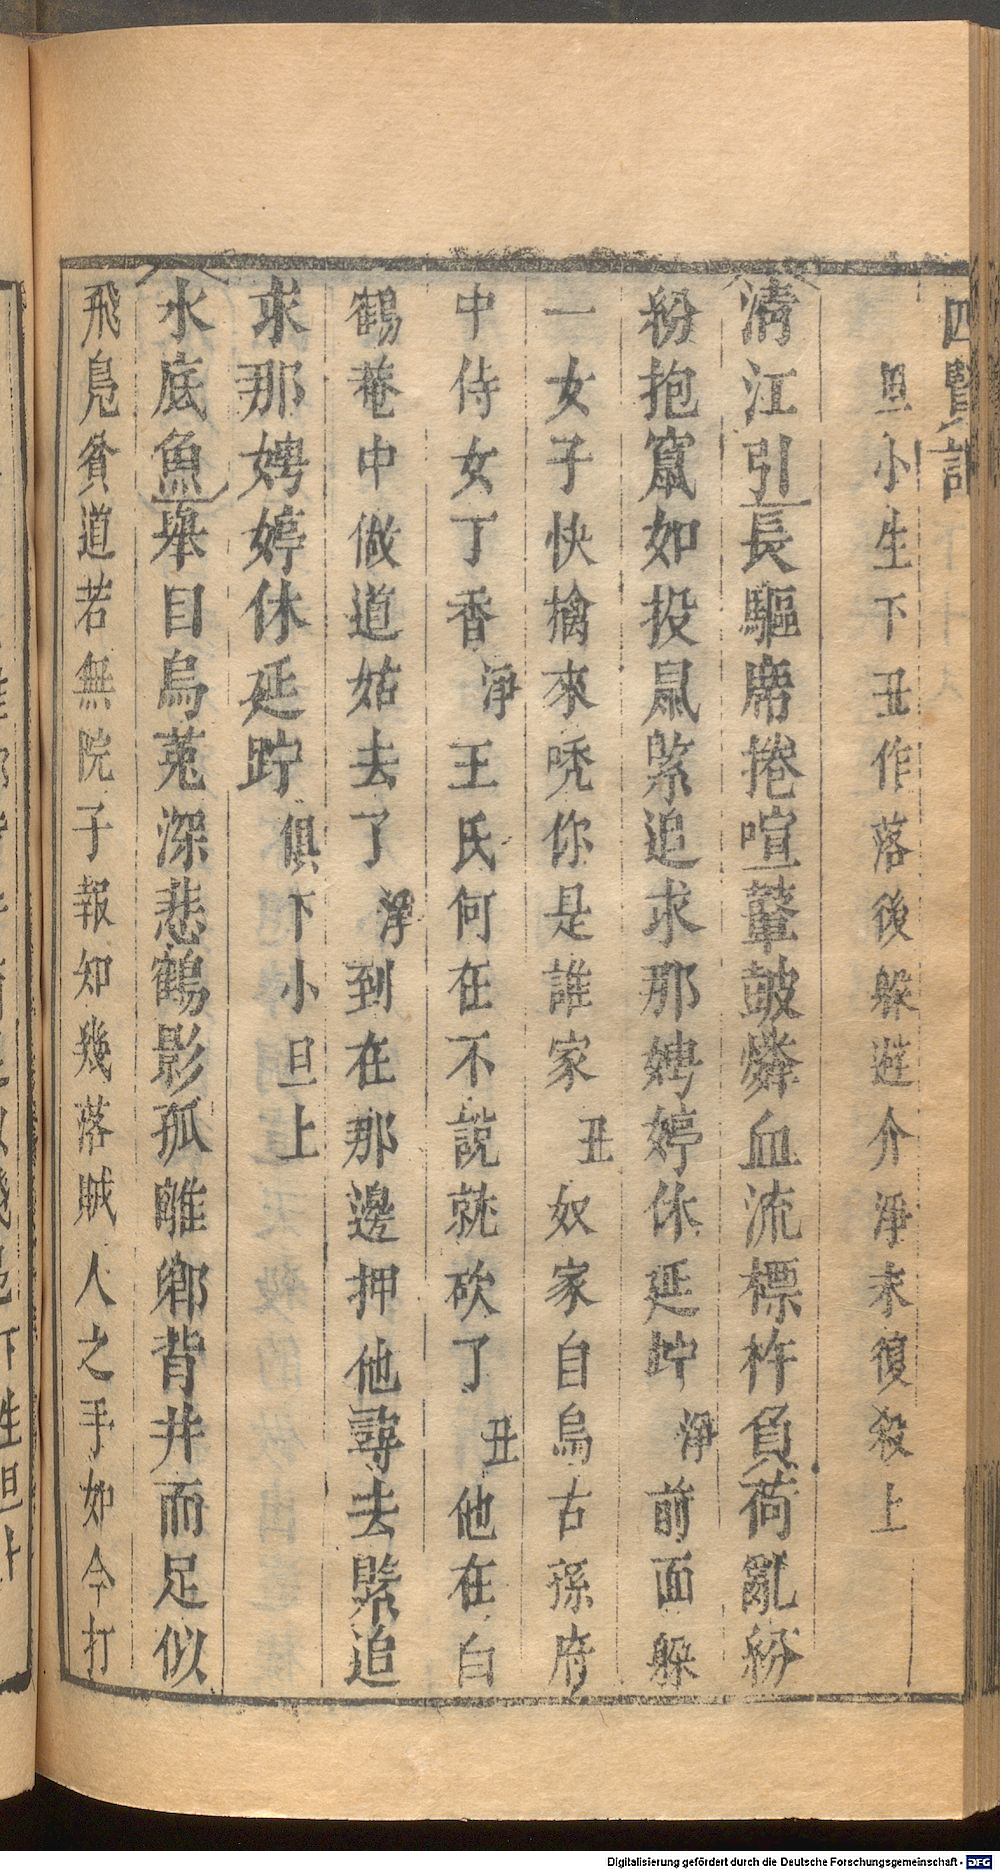 四賢記
旦小生下丑作落後躱避介淨末復殺上
清江引長驅席捲喧鼙鼓燐血流標杵負荷亂紛
紛抱竄如投鼠緊追求那娉婷休延佇淨前面躱
一女子快擒來唗你是誰家丑奴家自烏古孫府
中侍女丁香淨王氏何在不說就砍了丑他在白
鶴菴中做道姑去了淨到在那邊押他尋去緊追
求那娉婷休延佇俱下小旦上
水底魚舉目烏菟深悲鶴影孤離鄉背井而足似
飛鳧貧道若無院子報知幾落賊人之手如今打
Digitalisierung gefördert durch die Deutsche Forschungsgemeinschaft - DFG